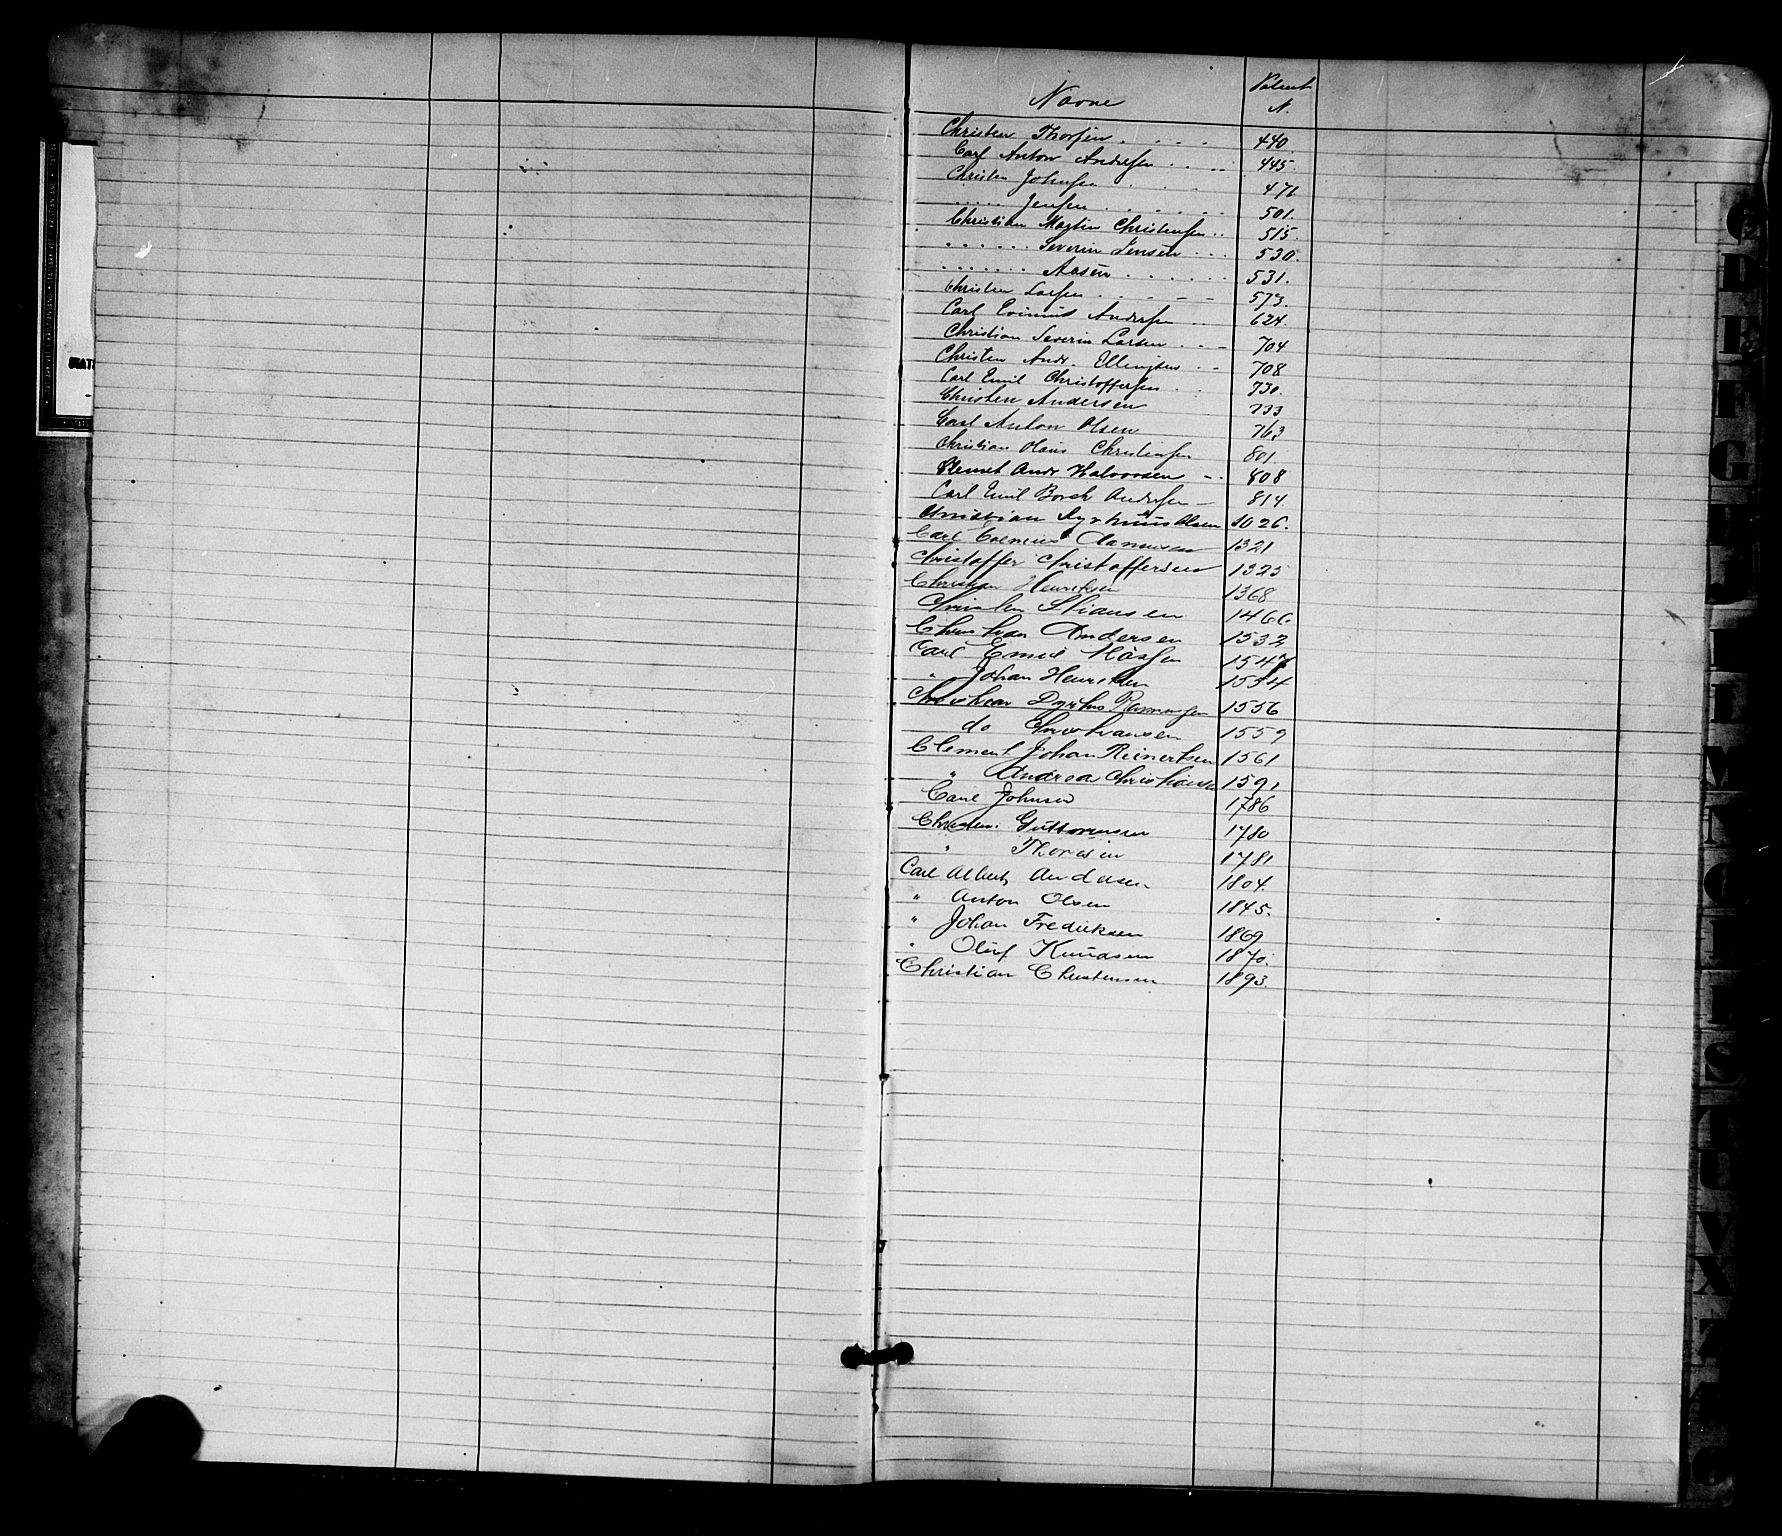 Navne Patent N.
Christen Thorsen . . . . 440.
Carl Anton Andersen . . . 445.
Christen Johnsen . . . 471
. . . . . Jensen . . . . . . 501.
Christian Martin Christensen . . 515.
. . . . . . Severin Jensen . . . 530.
. . . . . . . Aasen . . . . . . 531.
Christen Larsen . . . . 573.
Carl Andersen . . 624.
Christian Severin Larsen . . . 704
Christen Andr. Ellingsen . . 708
Carl Emil Christoffersen . . 730.
Christen Andersen 733
Carl Anton Olsen 763
Christian Olaus Christensen 801
Andr Halvorsen - . 808
Carl Emil Borch Andersen 814.
Christian Olsen 1026.
Carl 1321
Christoffer Christoffersen 1325
Christian Henriksen 1368
Christen Stiansen 1466
Christian Andersen 1532
Carl Emil 154
" Johan Henriksen 1554
Christian Dyrhus Rasmussen 1556
do Christiansen 1559
Clement Johan Reinertsen 1561
" Andrea Christiansen 1591
Carl Johnsen 1786
Christen Guttormsen 1780
" Thorsen 1781
Carl Albert Andersen 1804.
" Anton Olsen 1845.
" Johan Fredriksen 1869
" Oluf Knudsen 1870.
Christian Christensen 1893.